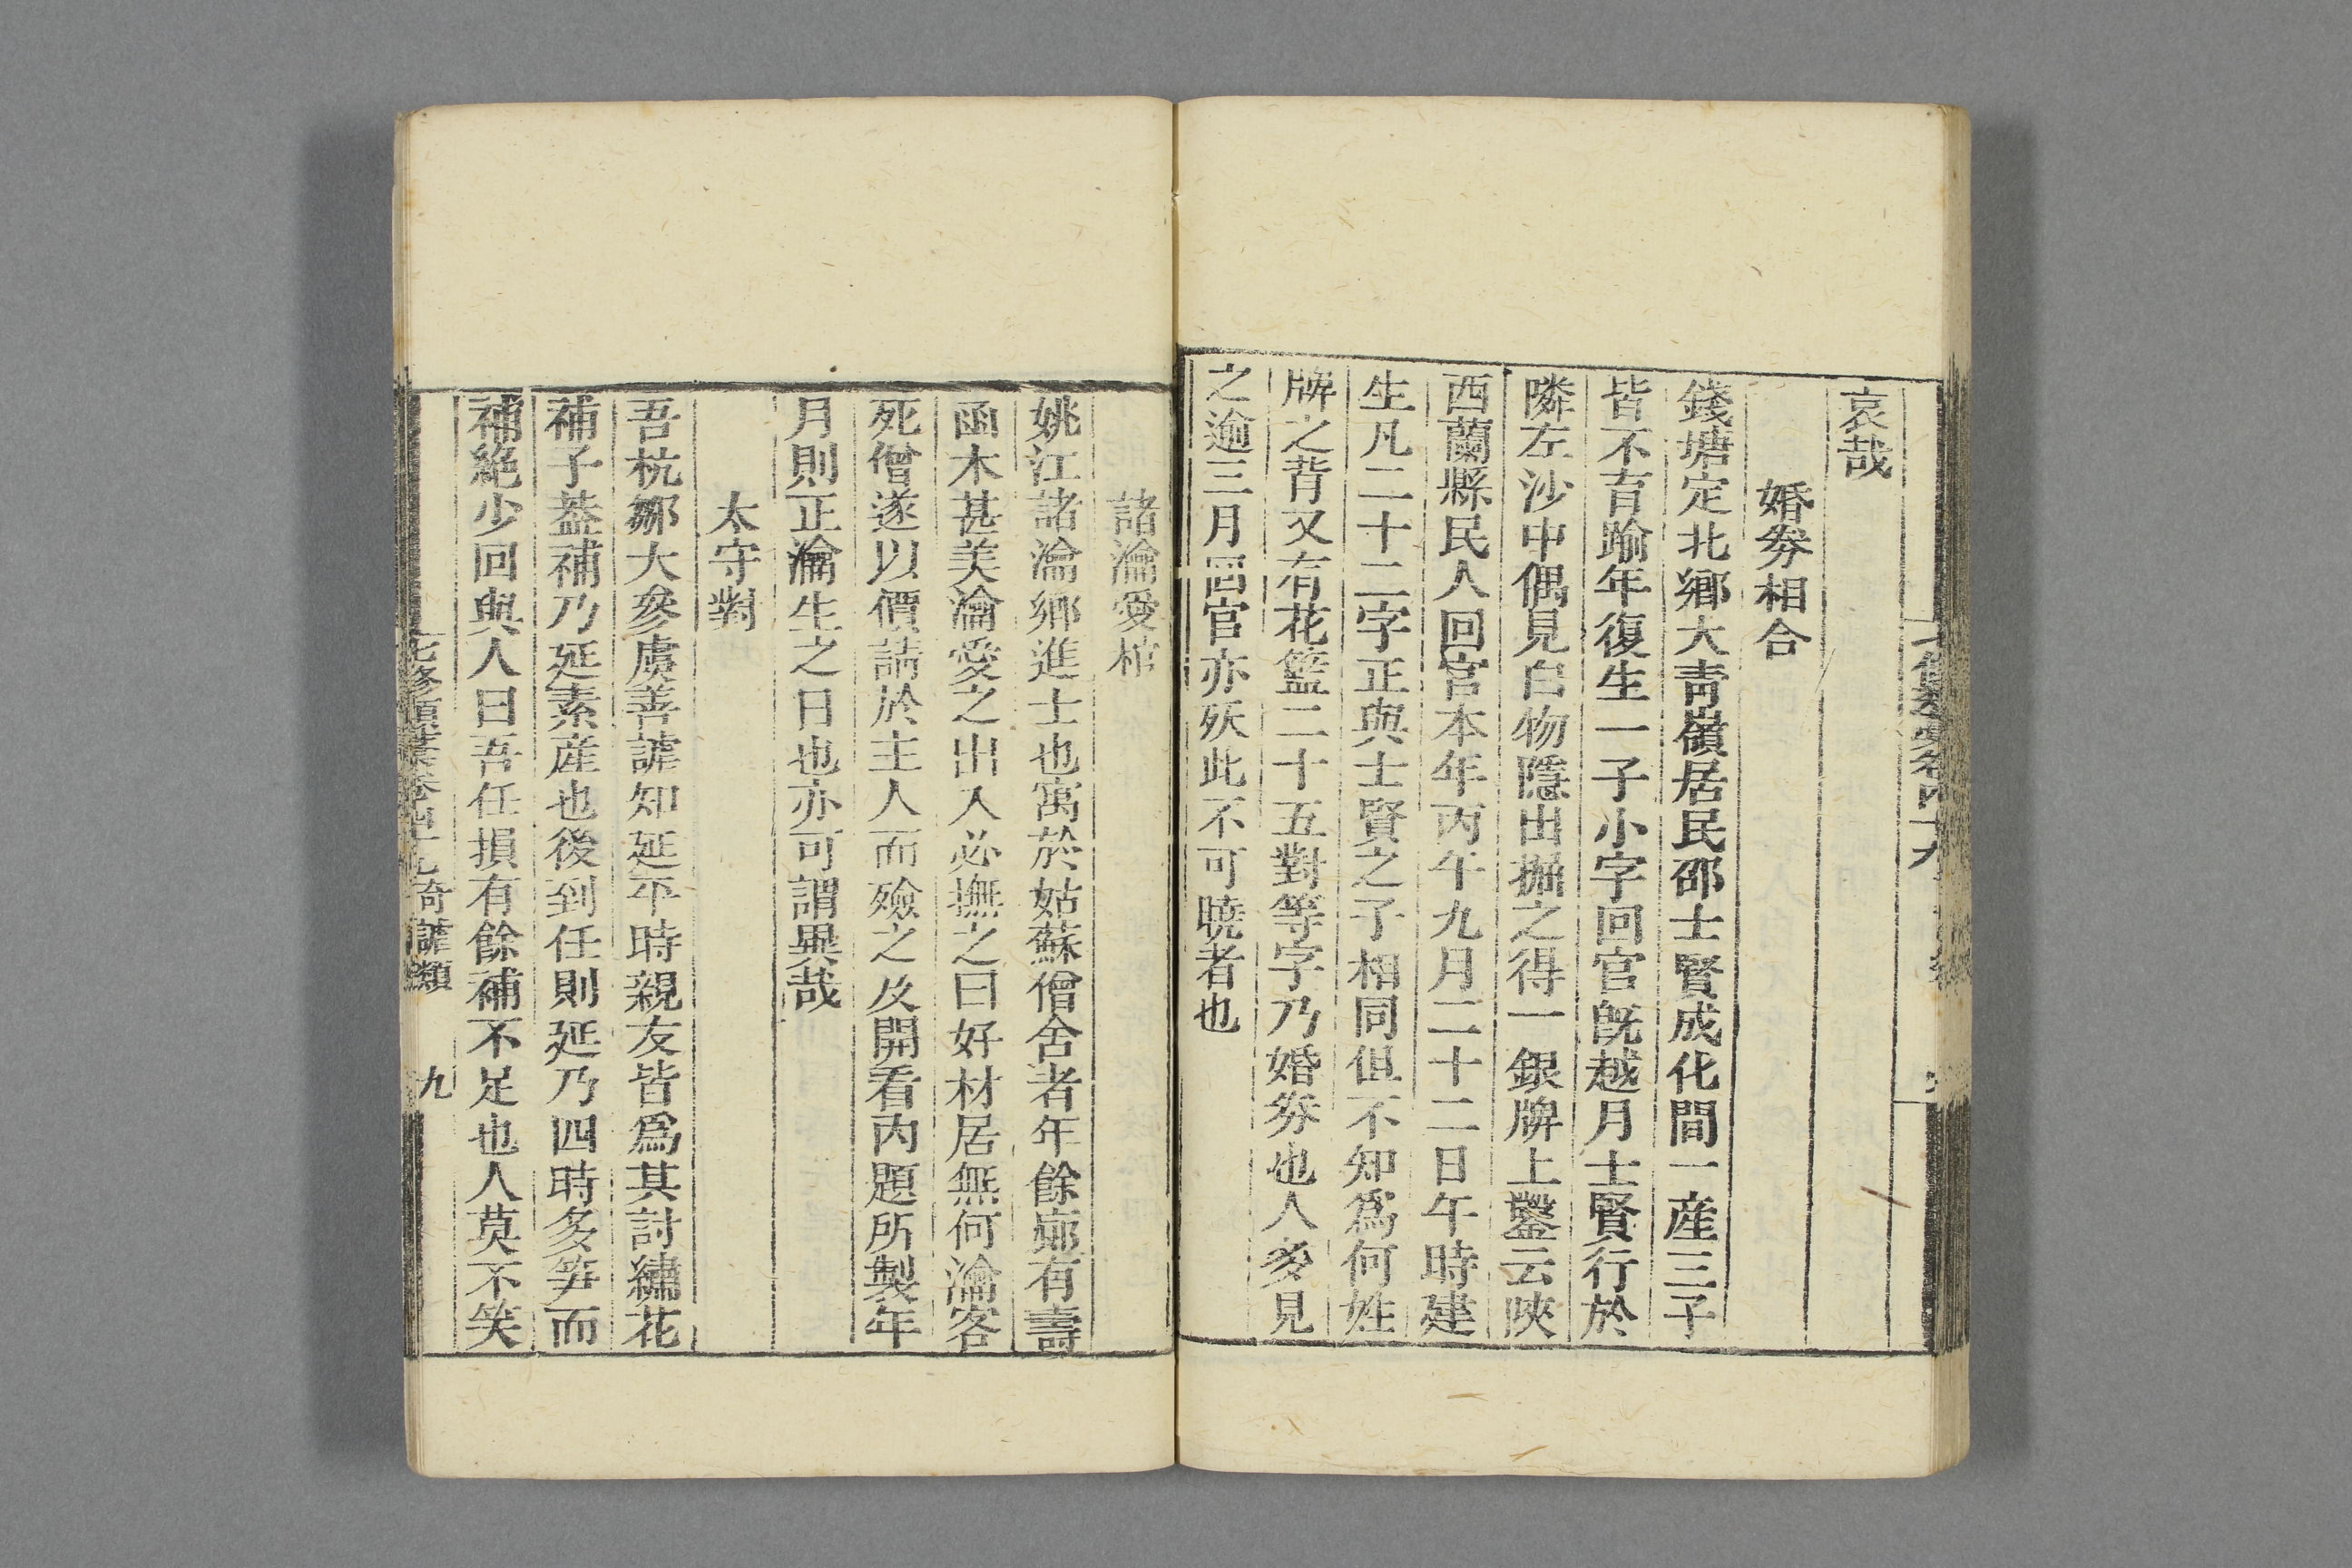 哀哉
婚劵相合
錢塘定北鄉大靑嶺居民邵士賢成化間一産三子
皆不育踰年復生一子小字回官旣越月士賢行於
隣左沙中偶見白物隱出掘之得一銀牌上鑿云陝
西蘭縣民人回官本年丙午九月二十二日午時建
生凡二十二字正與士賢之子相同但不知爲何姓
牌之背又有花籃二十五對等字乃婚劵也人多見
之逾三月回官亦殀此不可曉者也
諸瀹愛棺
姚江諸瀹鄉進士也寓於姑蘇僧舍者年餘廊有壽
函木甚美瀹愛之出入必撫之曰好材居無何瀹客
死僧遂以價請於主人而殮之及開看内題所製年
月則正瀹生之日也亦可謂異哉
太守對
吾杭鄒大參虞善謔知延平時親友皆爲其討繡花
補子葢補乃延素産也後到任則延乃四時多笋而
補絶少回與人曰吾任損有餘補不足也人莫不笑
七修類藁卷四十九奇謔類
九